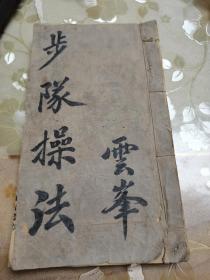 步隊操法
雲峯